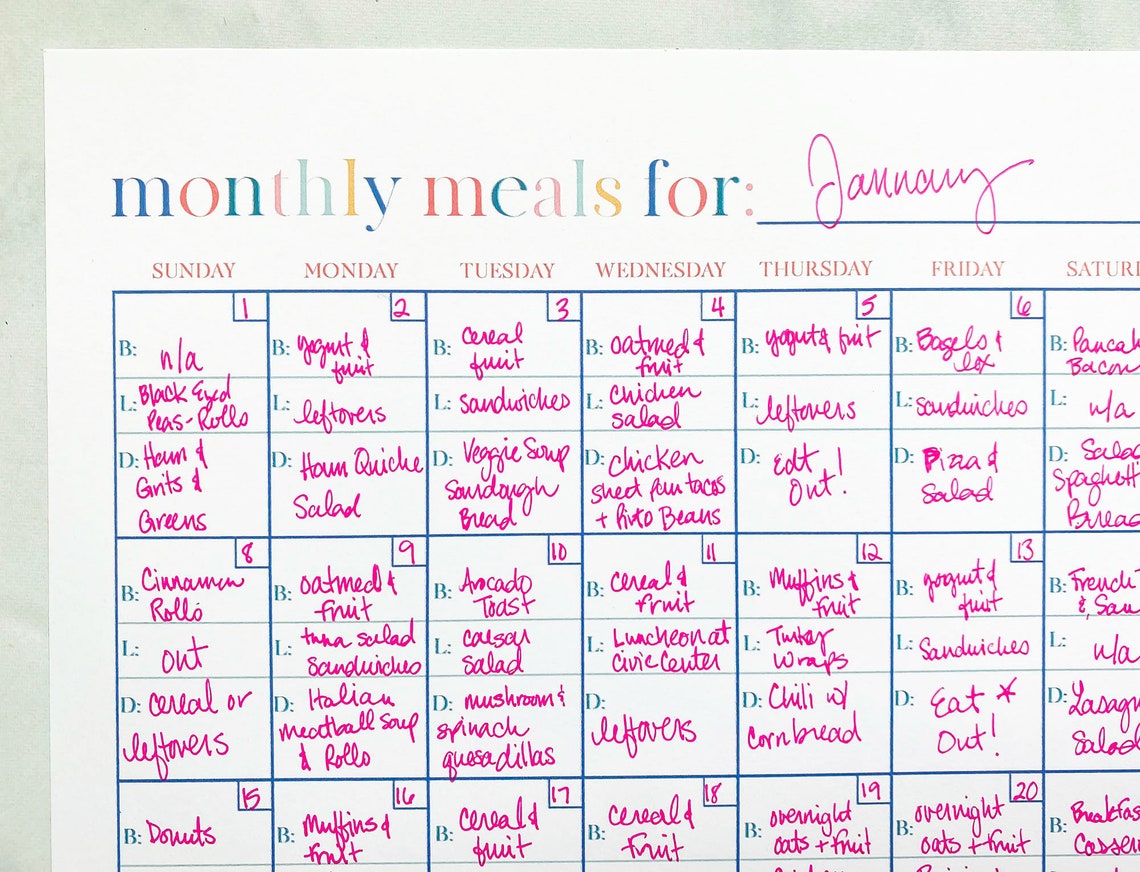 monthly meals for: January
SUNDAY MONDAY TUESDAY WEDNESDAY THURSDAY FRIDAY SATUR
1
B: n/a
L: Black Eyed
Peas-Rolls
D: Ham &
Grits &
Greens
2
B: yogurt &
fruit
L: leftovers
D: Ham Quiche
Salad
3
B: cereal
fruit
L: sandwiches
D: Veggie Soup
Sourdough
Bread
4
B: oatmeal &
fruit
L: Chicken
salad
D: chicken
sheet pan tacos
+ Pinto Beans
5
B: yogurt & fruit
L: leftovers
D: Eat
Out!
6
B: Bagels &
lox
L: sandwiches
D: Pizza &
salad
B: Pancak
Bacon
L: n/a
D: Salad
Spaghetti
Bread
8
B: Cinnamon
Rolls
L: out
D: cereal or
leftovers
9
B: oatmeal &
fruit
L: tuna salad
sandwiches
D: Italian
meatball soup
& Rolls
10
B: Avocado
Toast
L: caesar
salad
D: mushroom &
spinach
quesadillas
11
B: cereal &
fruit
L: Luncheon at
Civic Center
D:
leftovers
12
B: Muffins &
fruit
L: Turkey
wraps
D: Chili w/
cornbread
13
B: yogurt &
fruit
L: Sandwiches
D: Eat *
Out!
B: French
& Sau
L: n/a
D: Lasagn
Salad
15
B: Donuts
16
B: Muffins &
fruit
17
B: cereal &
fruit
18
B: cereal &
fruit
19
B: overnight
oats + fruit
20
B: overnight
oats + fruit
B: Breakfas
Casser